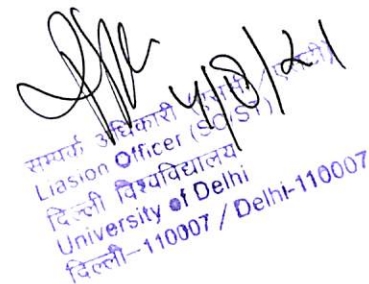 4/8/21
सम्पर्क अधिकारी (एससी/एसटी)
Liasion Officer (SC/ST)
दिल्ली विश्वविद्यालय
University of Delhi
दिल्ली-110007 / Delhi-110007